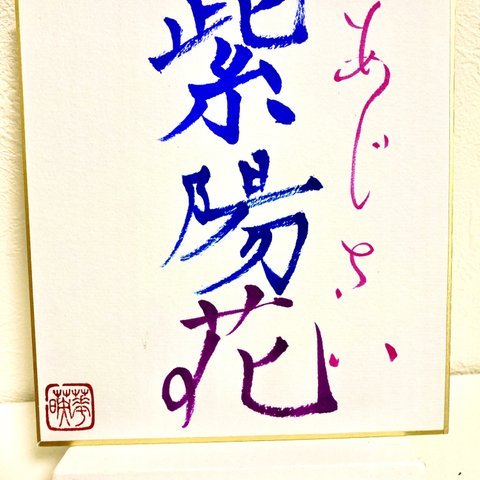 あじさい
紫陽花